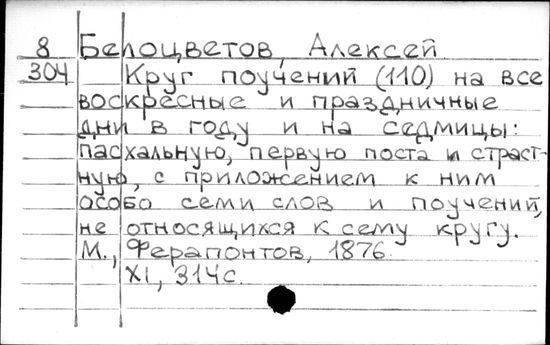 8 Белоцветов, Алексей
304 Круг поучений (110) на все
воскресные и праздничные
дни в году и на седмицы:
пасхальную, первую поста и страст-
ную, с приложением к ним
особо семи слов и поучений,
не относящихся к сему кругу.
М., Ферапонтов, 1876.
XI, 314с.